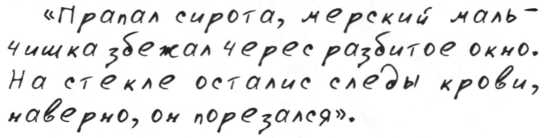 «Прапал сирота, мерский маль-
чишка збежал черес разбитое окно.
На стекле осталис следы крови,
наверно, он порезался».